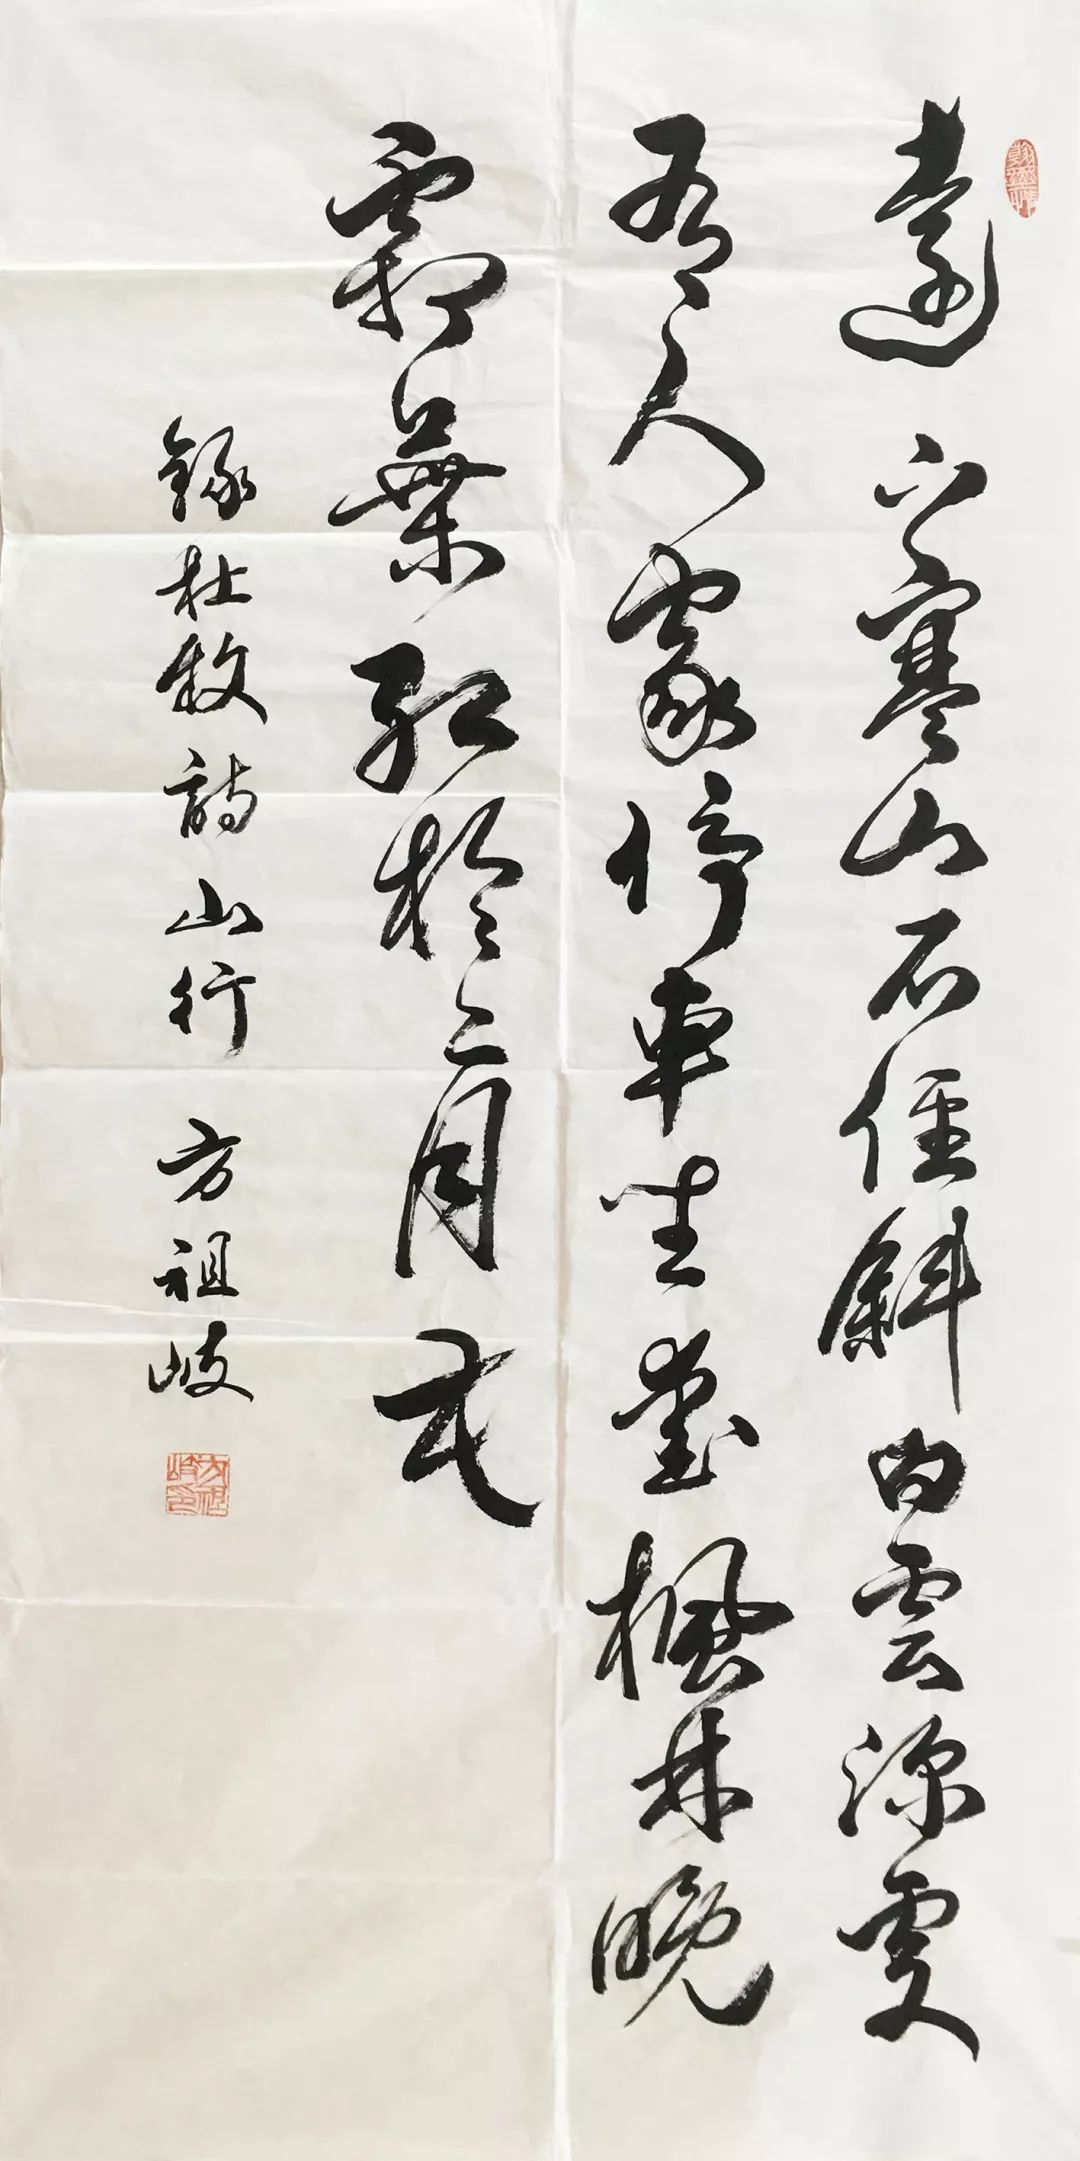 遠上寒山石徑斜白雲深處
有人家停車坐愛楓林晚
霜葉紅於二月花
錄杜牧詩山行 方祖岐
方祖岐印